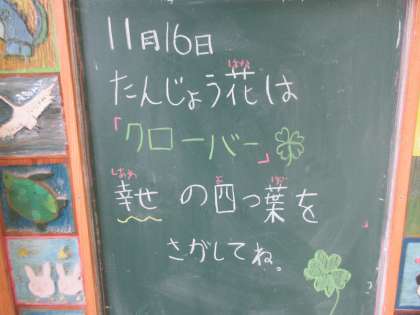 11月16日
たんじょう花は
「クローバー」
幸せの四つ葉を
さがしてね。